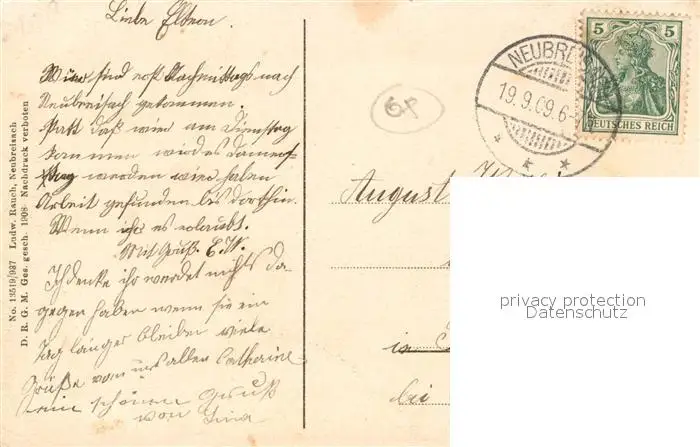 Liebe Eltern.
Wir sind erst Nachmittags nach
Neubreisach gekommen.
statt daß wir am Dienstag
kommen wird es Donners-
tag werden wir haben
Arbeit gefunden bis dorthin.
Wenn ihr es erlaubt.
Mit Gruß. E.W.
Ich denke ihr werdet nichts da-
gegen haben wenn sie ein
Tag länger bleiben viele
Grüße von uns allen Catharine
ein schönen Gruß
von Lina
No. 13519/937 Ludw. Rauch, Neubreisach
D. R. G. M. Ges. gesch. 1908 Nachdruck verboten
6p
NEUBREI
19.9.09.6-
5 5
DEUTSCHES REICH
August
in
bei
privacy protection
Datenschutz